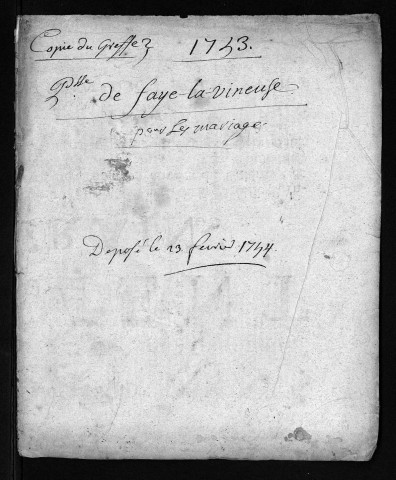 Copie du Greffe 1743.
P.sse de faye-la-vineuse
pour Les mariages
Deposé le 23 fevrier 1744.